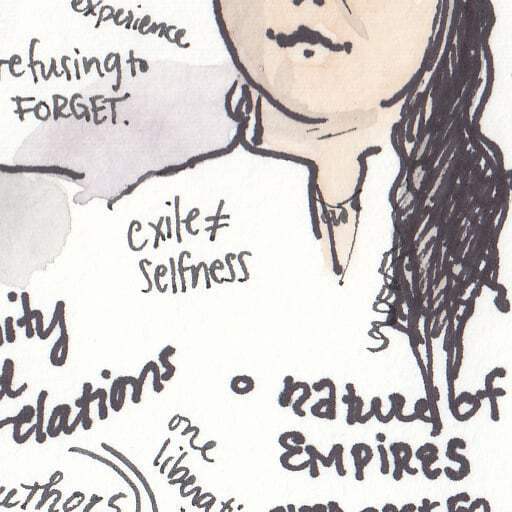 experience
refusing to
FORGET.
exile ≠
selfness
ity
elations
• nature of
EMPIRES
one
liberati
uthors